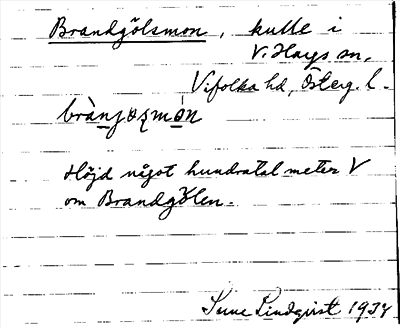 Brandgölsmon, kulle i
V. Hargs sn,
Vifolka hd, Österg. l.
Höjd något hundratal meter V
om Brandgölen.
Sune Lindqvist 1934